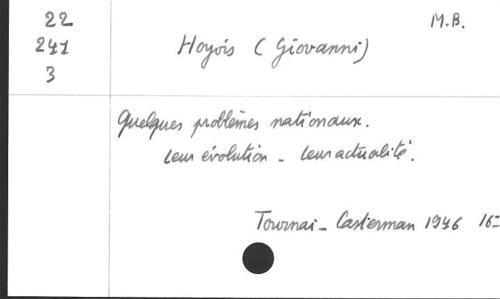 22
M.B.
241
Hoyois (Giovanni)
3
Quelques problèmes nationaux.
Leur évolution - leur actualité.
Tournai - Casterman 1946 16=